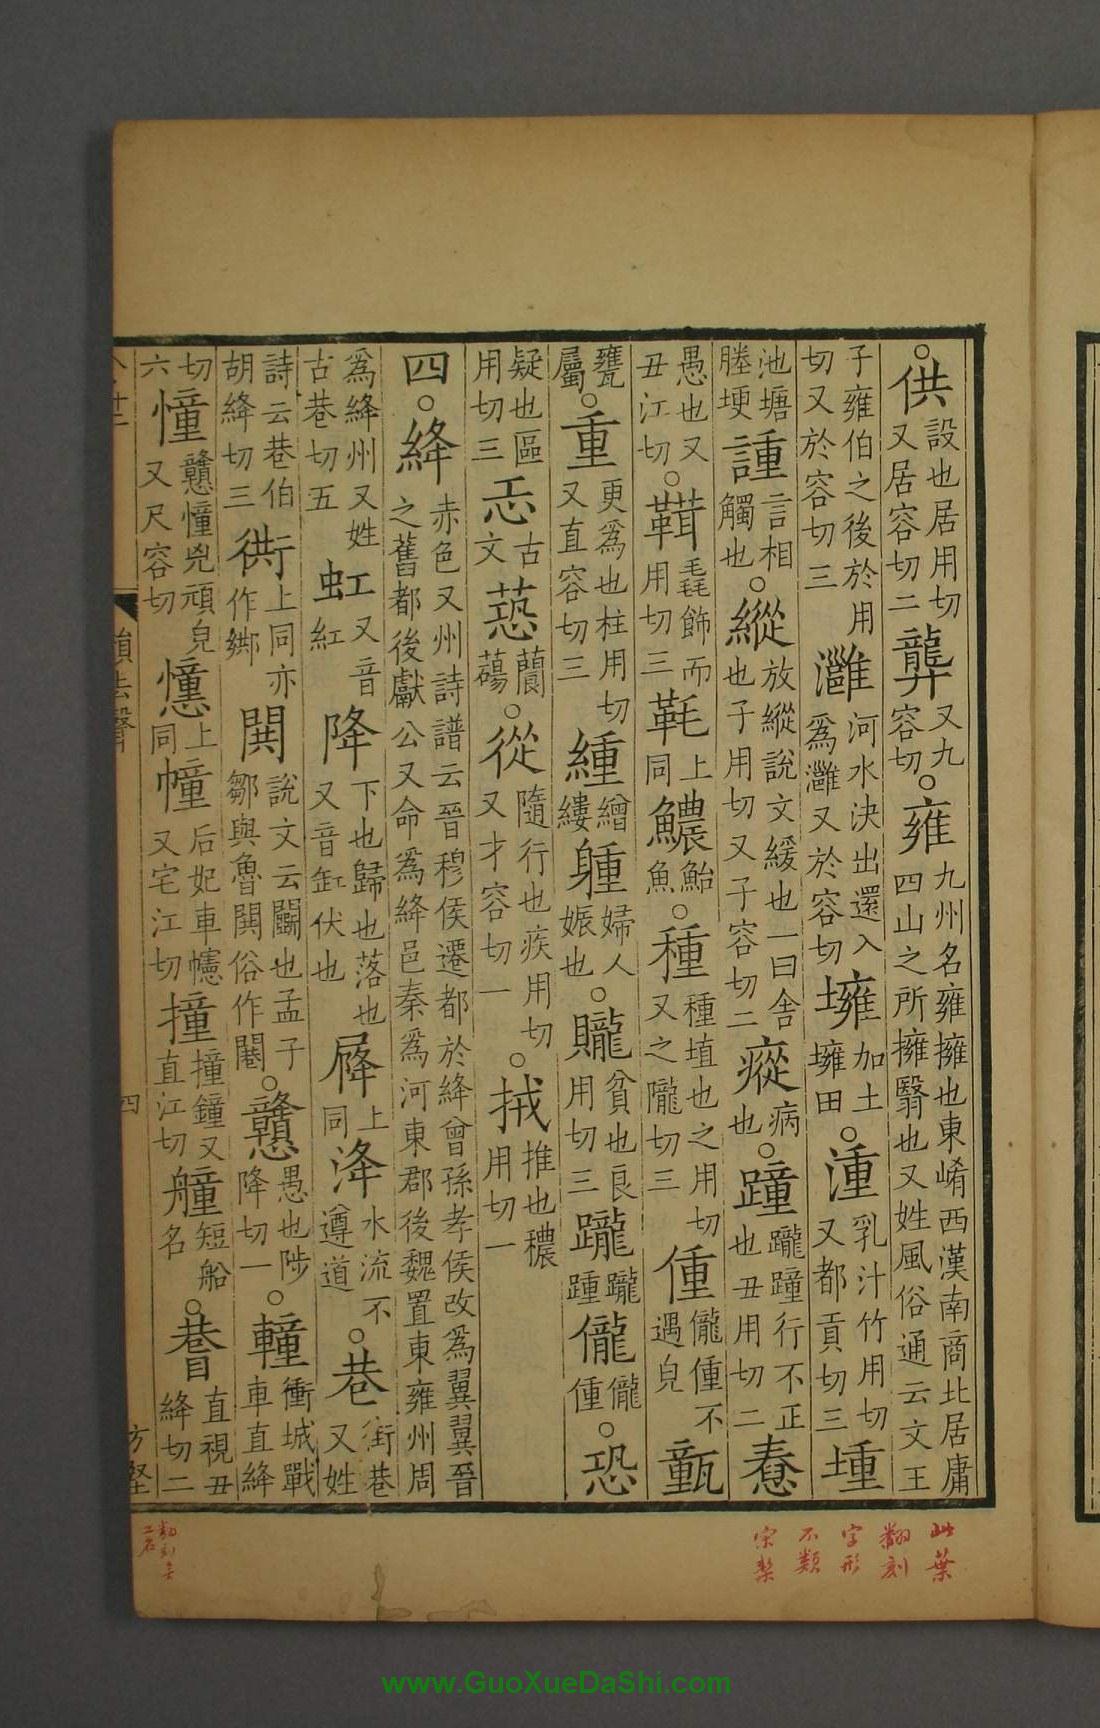 ○供設也居用切又居容切二龏又九容切○雍九州名雍擁也東崤西漢南商北居庸四山之所擁翳也又姓風俗通云文王
子雍伯之後於用切又於容切三灉河水決出還入爲灉又於容切壅加土壅田○湩乳汁竹用切又都貢切三堹
池塘塍埂諥言相觸也○縱放縱說文緩也一曰舍也子用切又子容切二瘲病也○蹱躘蹱行不正也丑用切二憃
愚也又丑江切○鞋毳飾而用切三䩸上同鱫鮐魚○種種埴也之用切又之隴切三偅儱偅不遇皃㼿
甕屬○重更爲也柱用切又直容切三緟繒縷𨉢婦人娠也○贚貧也良用切三躘躘踵儱儱偅○恐
疑也區用切三㤟古文蒠䕞蕩○從隨行也疾用切又才容切一○拭推也穠用切一
四○絳赤色又州詩譜云晉穆侯遷都於絳曾孫孝侯改爲翼翼晉之舊都後獻公又命爲絳邑秦爲河東郡後魏置東雍州周
爲絳州又姓古巷切五虹又音紅降下也歸也落也又音缸伏也𡲣上同洚水流不遵道○巷街巷又姓
詩云巷伯胡絳切三衖上同亦作䢽閧說文云鬭也孟子鄒與魯閧俗作閧○戇愚也陟降切一○䡴衝城戰車直絳
切六憧戇憧兇頑皃又尺容切𢥞上同幢后妃車幰又宅江切撞撞鐘又直江切艟短船名○𥊲直視丑絳切二
韻去聲
四
方堅
此葉
翻刻
字形
不類
宋槧